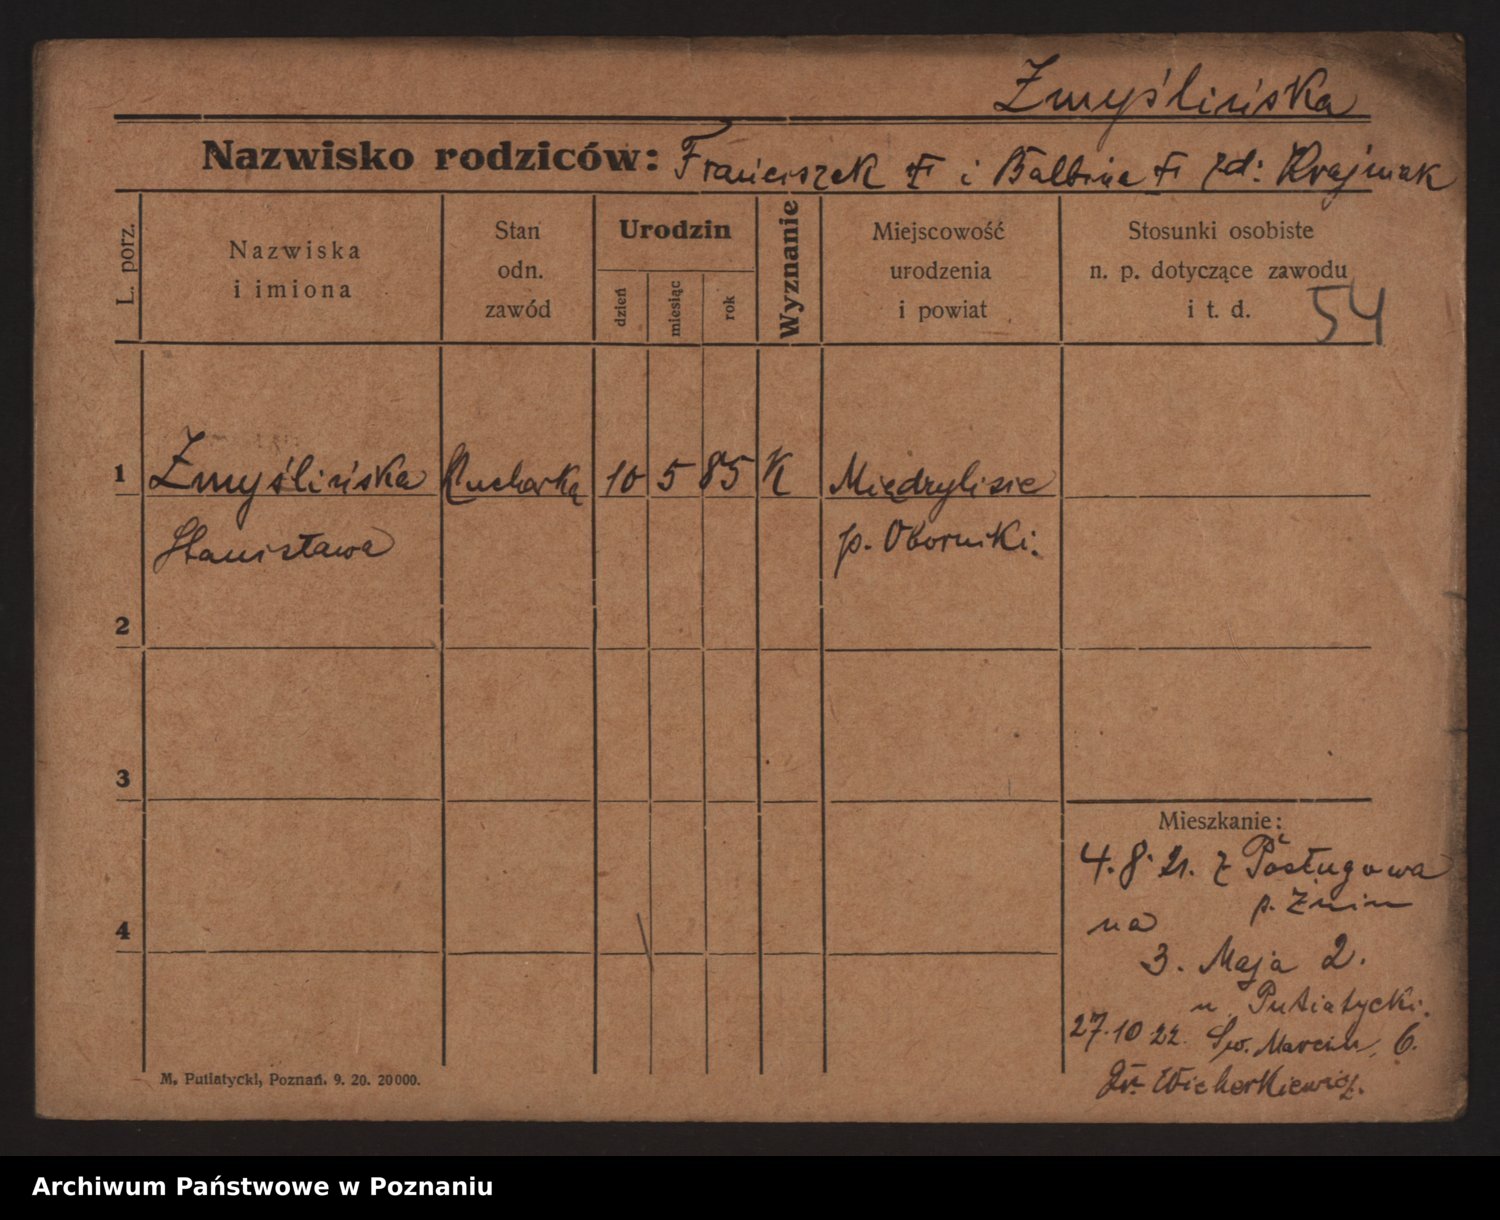 Zmyślińska
Nazwisko rodziców: Franciszek ✝ i Balbina ✝ zd: Krajniak
L. porz.
Nazwiska
i imiona
Stan
odn.
zawód
Urodzin
dzień
miesiąc
rok
Wyznanie
Miejscowość
urodzenia
i powiat
Stosunki osobiste
n. p. dotyczące zawodu
i t. d.
54
1 Zmyślińska Kucharka 10 5 85 K Międzylisie
Stanisława p. Oborniki.
2
3
Mieszkanie:
4.8.21. z Posługowa
p. Żnin
na
4
3. Maja 2.
u Putiatycki.
27.10 22. Św. Marcin 6.
Dr. Wicherkiewicz.
M. Putiatycki, Poznań. 9. 20. 20000.
Archiwum Państwowe w Poznaniu